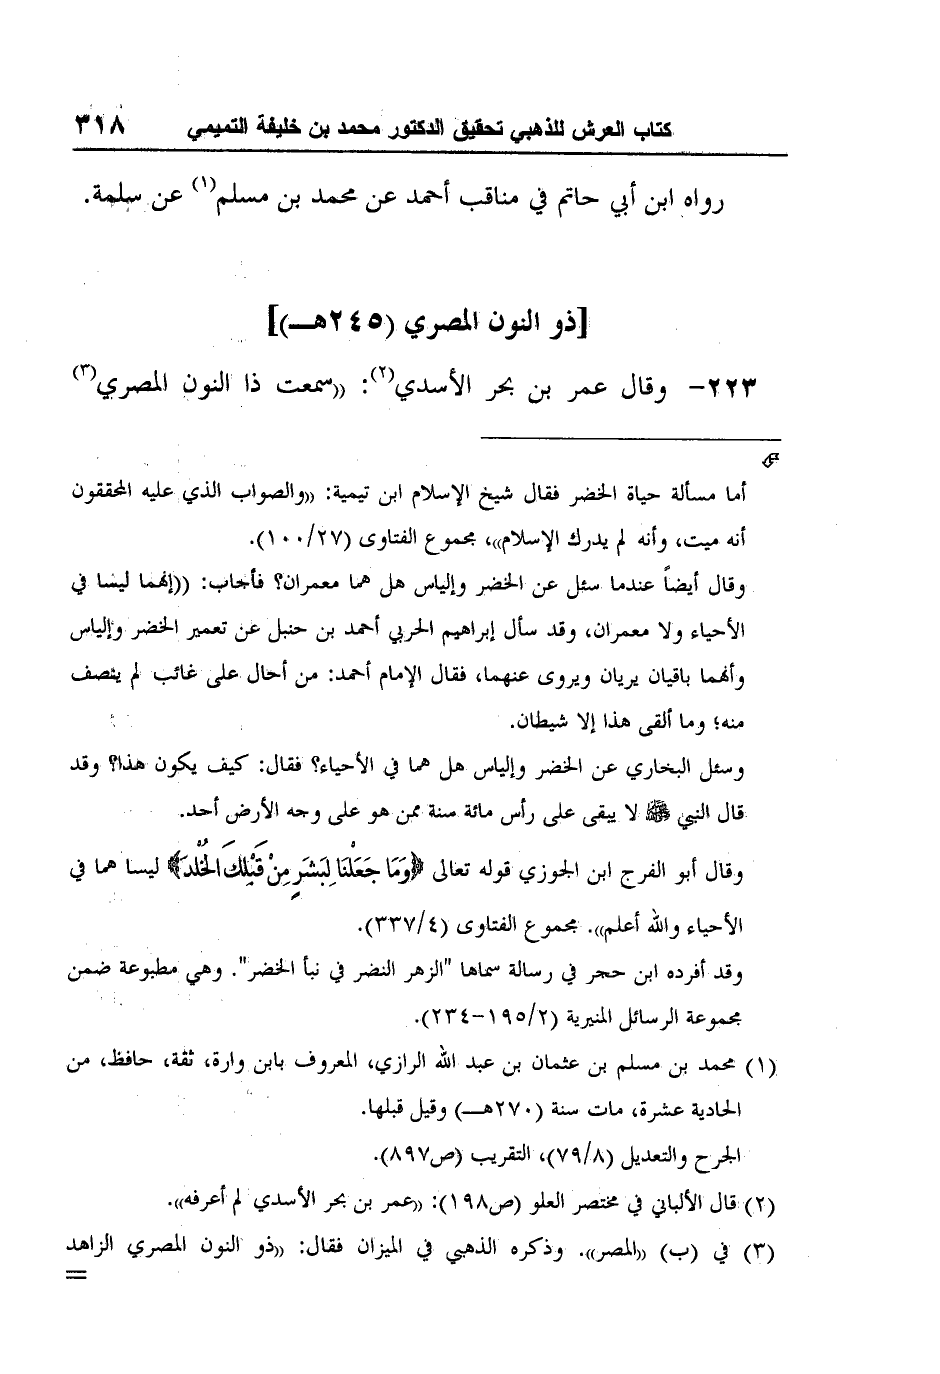 كتاب العرش للذهبي تحقيق الدكتور محمد بن خليفة التميمي ٣١٨
رواه ابن أبي حاتم في مناقب أحمد عن محمد بن مسلم(١) عن سلمة.
[ذو النون المصري (٢٤٥هـ)]
٢٢٣- وقال عمر بن بحر الأسدي(٢): ((سمعت ذا النون المصري(٣)
أما مسألة حياة الخضر فقال شيخ الإسلام ابن تيمية: ((والصواب الذي عليه المحققون
أنه ميت، وأنه لم يدرك الإسلام))، مجموع الفتاوى (١٠٠/٢٧).
وقال أيضاً عندما سئل عن الخضر وإلياس هل هما معمران؟ فأجاب: ((إنهما ليسا في
الأحياء ولا معمران، وقد سأل إبراهيم الحربي أحمد بن حنبل عن تعمير الخضر وإلياس
وأنهما باقيان يريان ويروى عنهما، فقال الإمام أحمد: من أحال على غائب لم ينصف
منه؛ وما ألقى هذا إلا شيطان.
وسئل البخاري عن الخضر وإلياس هل هما في الأحياء؟ فقال: كيف يكون هذا؟ وقد
قال النبي ﷺ لا يبقى على رأس مائة سنة ممن هو على وجه الأرض أحد.
وقال أبو الفرج ابن الجوزي قوله تعالى ﴿وَمَا جَعَلْنَا لِبَشَرٍ مِنْ قَبْلِكَ الْخُلْدَ﴾ ليسا هما في
الأحياء والله أعلم)). مجموع الفتاوى (٣٣٧/٤).
وقد أفرده ابن حجر في رسالة سماها "الزهر النضر في نبأ الخضر". وهي مطبوعة ضمن
مجموعة الرسائل المنيرية (١٩٥/٢-٢٣٤).
(١) محمد بن مسلم بن عثمان بن عبد الله الرازي، المعروف بابن وارة، ثقة، حافظ، من
الحادية عشرة، مات سنة (٢٧٠هـ) وقيل قبلها.
الجرح والتعديل (٧٩/٨)، التقريب (ص٨٩٧).
(٢) قال الألباني في مختصر العلو (ص١٩٨): ((عمر بن بحر الأسدي لم أعرفه)).
(٣) في (ب) ((المصر)). وذكره الذهبي في الميزان فقال: ((ذو النون المصري الزاهد
=